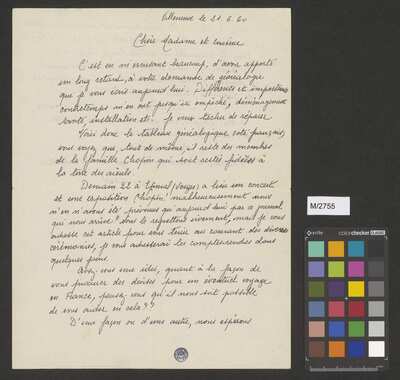 Villeneuve le 21. 6. 60
Chère Madame et cousine
C'est en m'excusant beaucoup, d'avoir apporté
un long retard, à votre demande de généalogie
que je vous écris aujourd'hui. Différents et importants
contretemps m'en ont jusqu'ici empêché, déménagement
santé, installation etc. Je veux tâcher de réparer.
Voici donc le tableau généalogique coté français,
vous voyez que, tout de même, il reste des membres
de la famille Chopin qui sont restés fidèles à
la terre des aïeuls.
Demain 22 à (Vosges) a lieu un concert
et une exposition Chopin, malheureusement nous
n'en n'avons été prévenus qu'aujourd'hui par ce journal
qui nous arrive! nous le regrettons vivement, mais je vous
cet article pour vous tenir au courant des diverses
cérémonies, je vous adresserai les comptes-rendus dans
quelques jours.
Avez vous une idée, quant à la façon de
vous procurer des devises pour un éventuel voyage
en France, pensez vous qu'il nous soit possible
de vous aider en cela??
D'une façon ou d'une autre, nous espérons
M/2755
colorchecker CLASSIC